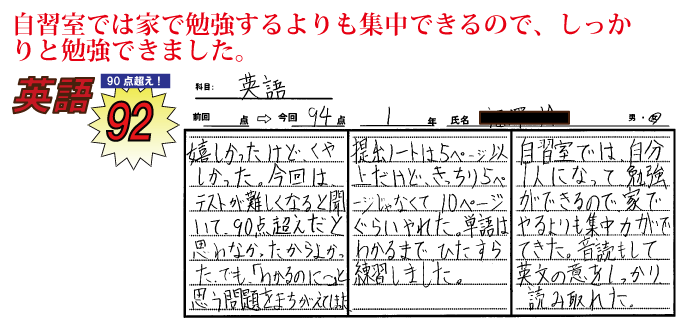 自習室では家で勉強するよりも集中できるので、しっか
りと勉強できました。
英語
90点超え！
92
科目: 英語
前回 点 ⇨ 今回 94 点 1 年 氏名 男・女
嬉しかったけど、くや
しかった。今回は、
テストが難しくなると聞
いて、90点超えだと
思わなかったからよかっ
た。でも、「わかるのに～」と
思う問題をまちがえてしまった
提出ノートは5ページ以
上だけど、きっちり5ペ
ージじゃなくて10ページ
ぐらいやれた。単語は
わかるまでひたすら
練習しました。
自習室では、自分
1人になって勉強
ができるので家で
やるよりも集中力がで
てきた。音読もして
英文の意をしっかり
読み取れた。